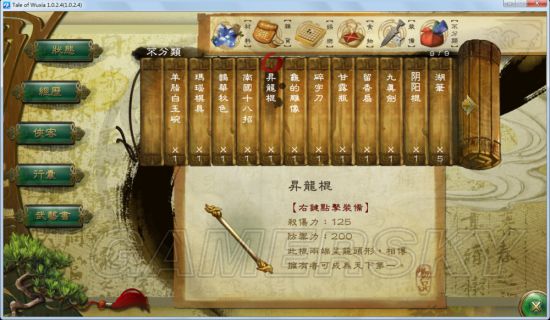 Tale of Wuxia 1.0.2.4(1.0.2.4)
狀態
經歷
俠客
行囊
武藝書
不分類
雜貨
裝備
不分類
9/9
羊脂白玉碗
瑪瑙棋具
鵲華秋色
南國十八招
昇龍棍
龜的雕像
碎字刀
甘露瓶
留香扇
九真劍
阴阳棍
湖筆
×1 ×1 ×1 ×1 ×1 ×1 ×1 ×1 ×1 ×1 ×1 ×5
昇龍棍
【右鍵點擊裝備】
殺傷力：125
防禦力：200
此棍兩端呈龍頭形，相傳
擁有者可成為天下第一。
GAMERSKY